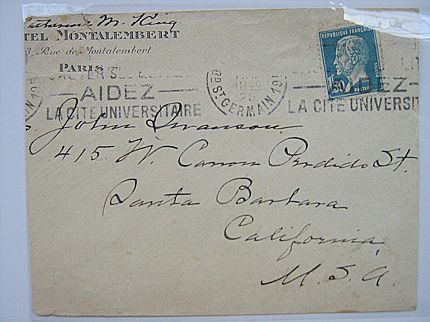 Catherine M. King
TEL MONTALEMBERT
3, Rue de Montalembert
PARIS
AIDEZ
LA CITE UNIVERSITAIRE
BD ST GERMAIN 195
REPUBLIQUE FRANÇAISE
1F50
POSTES
AIDEZ
LA CITE UNIVERSIT
John Swanson
415 W. Canon Perdido St.
Santa Barbara
California
U.S.A.